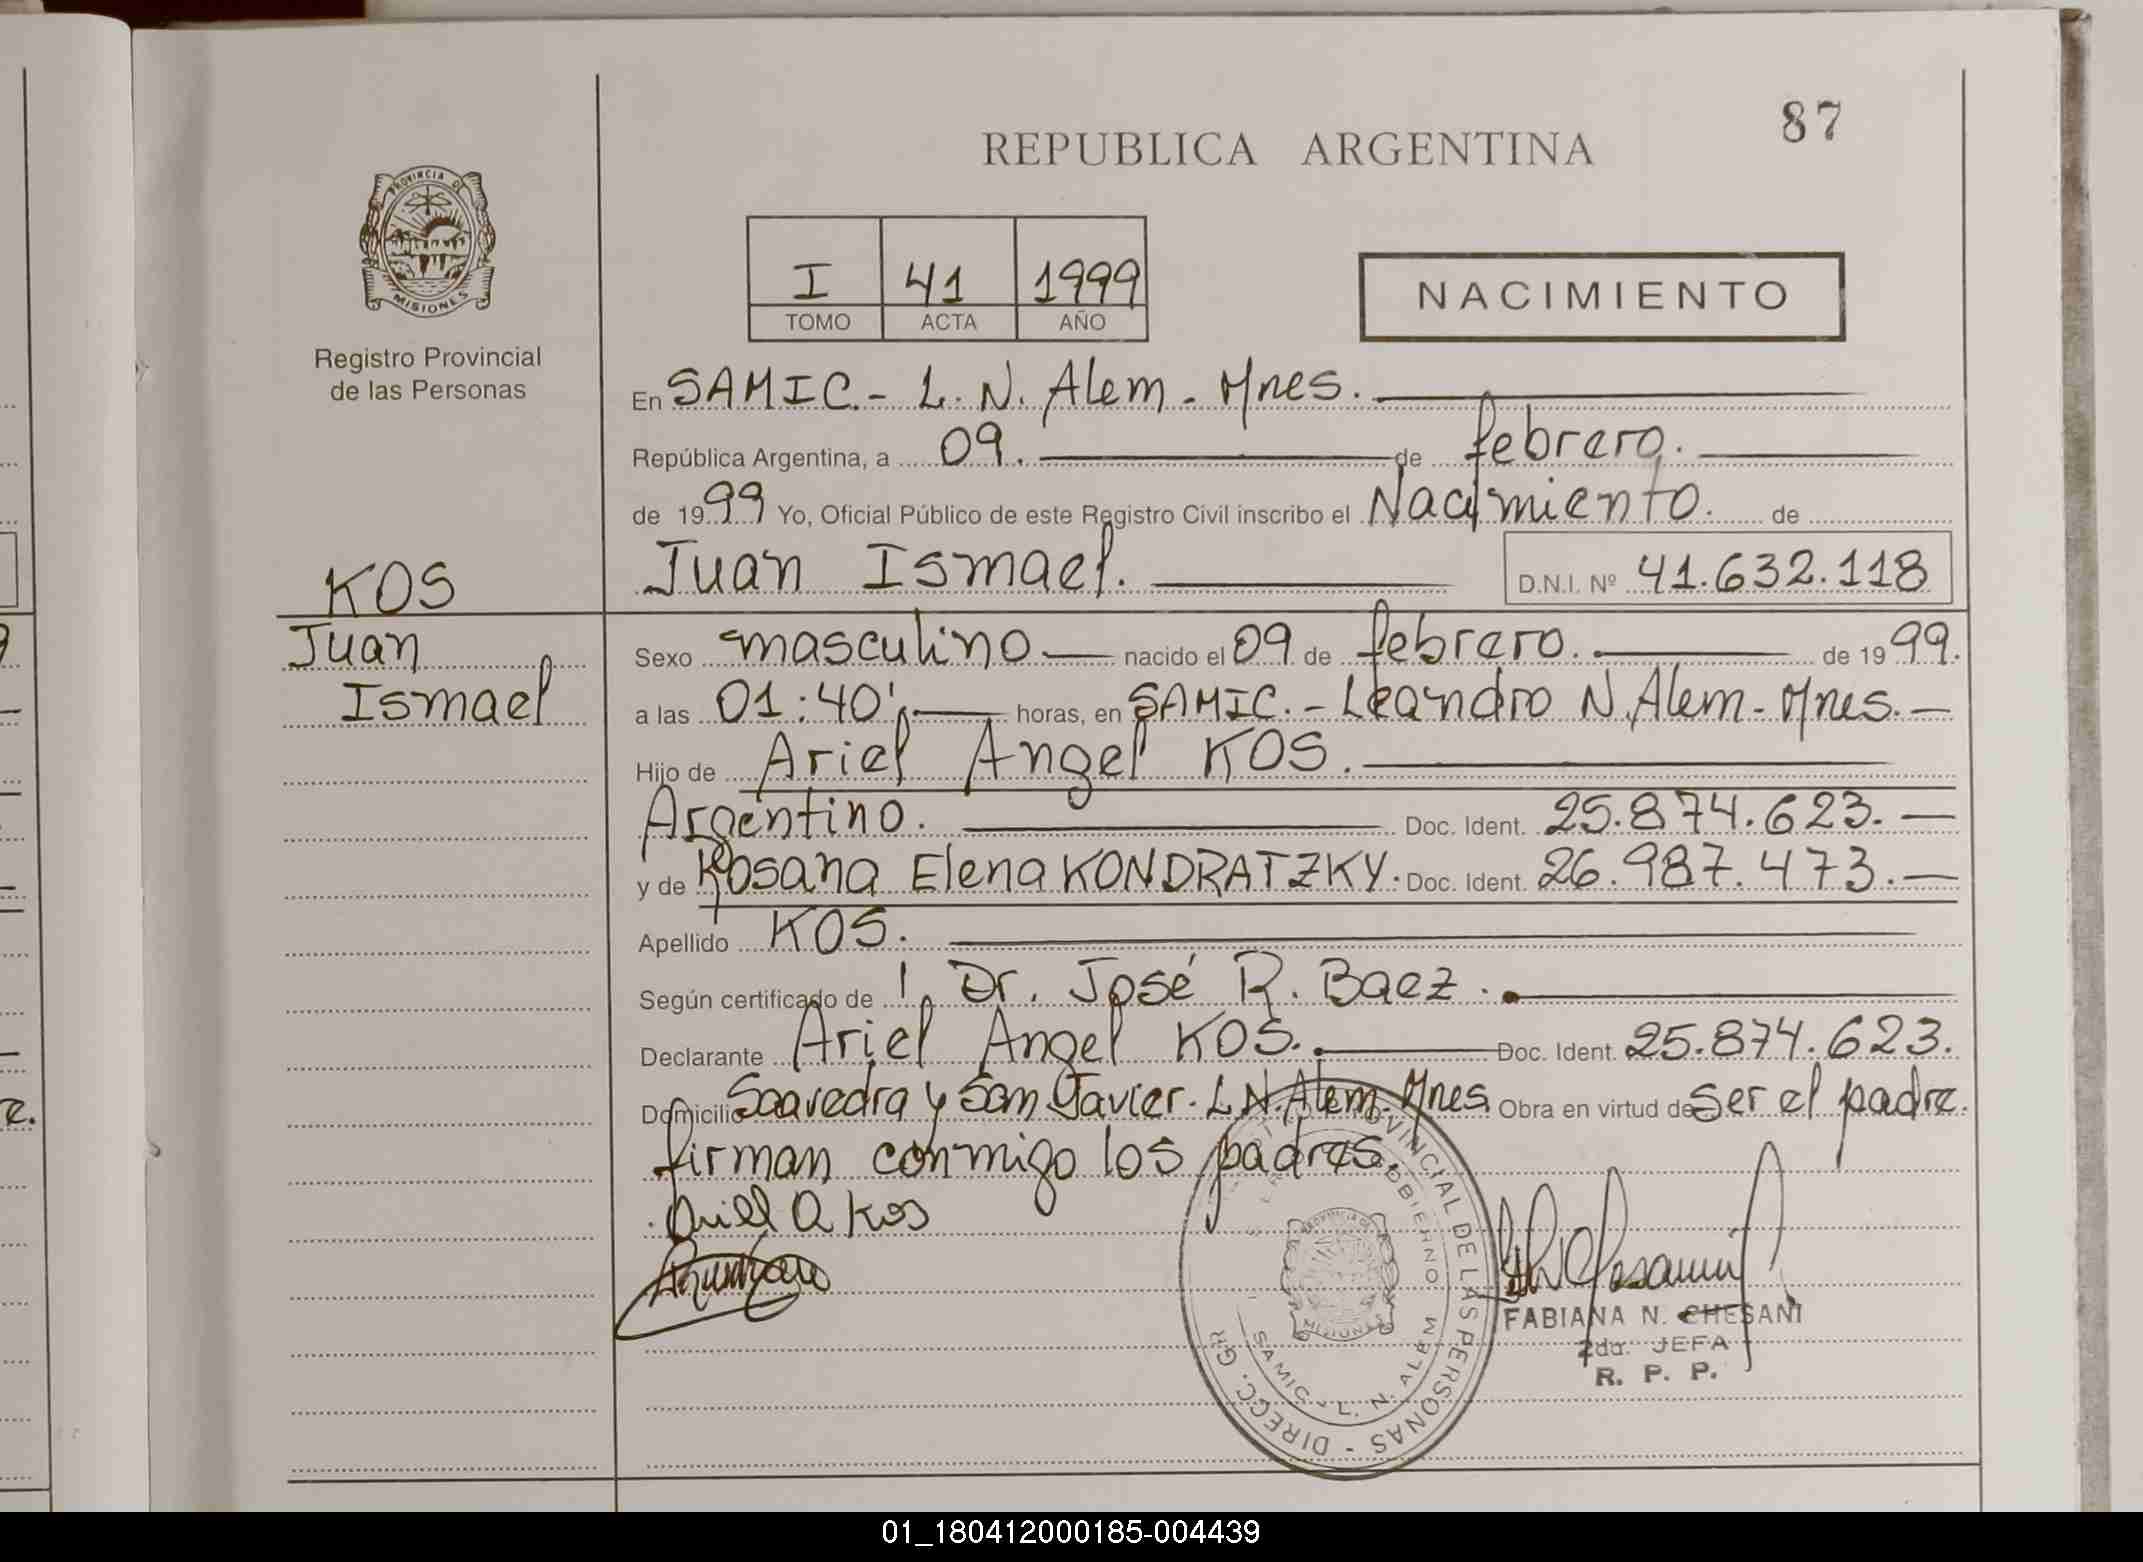 87
REPUBLICA ARGENTINA
PROVINCIA DE
MISIONES
Registro Provincial
de las Personas
I 41 1999
TOMO ACTA AÑO
NACIMIENTO
En SAMIC.- L. N. Alem - Mnes.
República Argentina, a 09. de febrero.
de 1999 Yo, Oficial Público de este Registro Civil inscribo el Nacimiento. de
Juan Ismael. D.N.I. Nº 41.632.118
KOS
Juan
Ismael
Sexo masculino nacido el 09 de febrero. de 1999.
a las 01:40' horas, en SAMIC.- Leandro N. Alem - Mnes.-
Hijo de Ariel Angel KOS.
Argentino. Doc. Ident. 25.874.623.-
y de Rosana Elena KONDRATZKY. Doc. Ident. 26.987.473.-
Apellido KOS.
Según certificado de Dr. José R. Baez.
Declarante Ariel Angel KOS. Doc. Ident. 25.874.623.
Domicilio Saavedra y San Javier. L N. Alem. Mnes. Obra en virtud de Ser el padre.
firman conmigo los padres.
Ariel A Kos
PROVINCIAL DE LAS PERSONAS - DIRECC. GR
SAMIC - L. N. ALEM
MISIONES
FABIANA N. CHESANI
2da. JEFA
R. P. P.
01_180412000185-004439